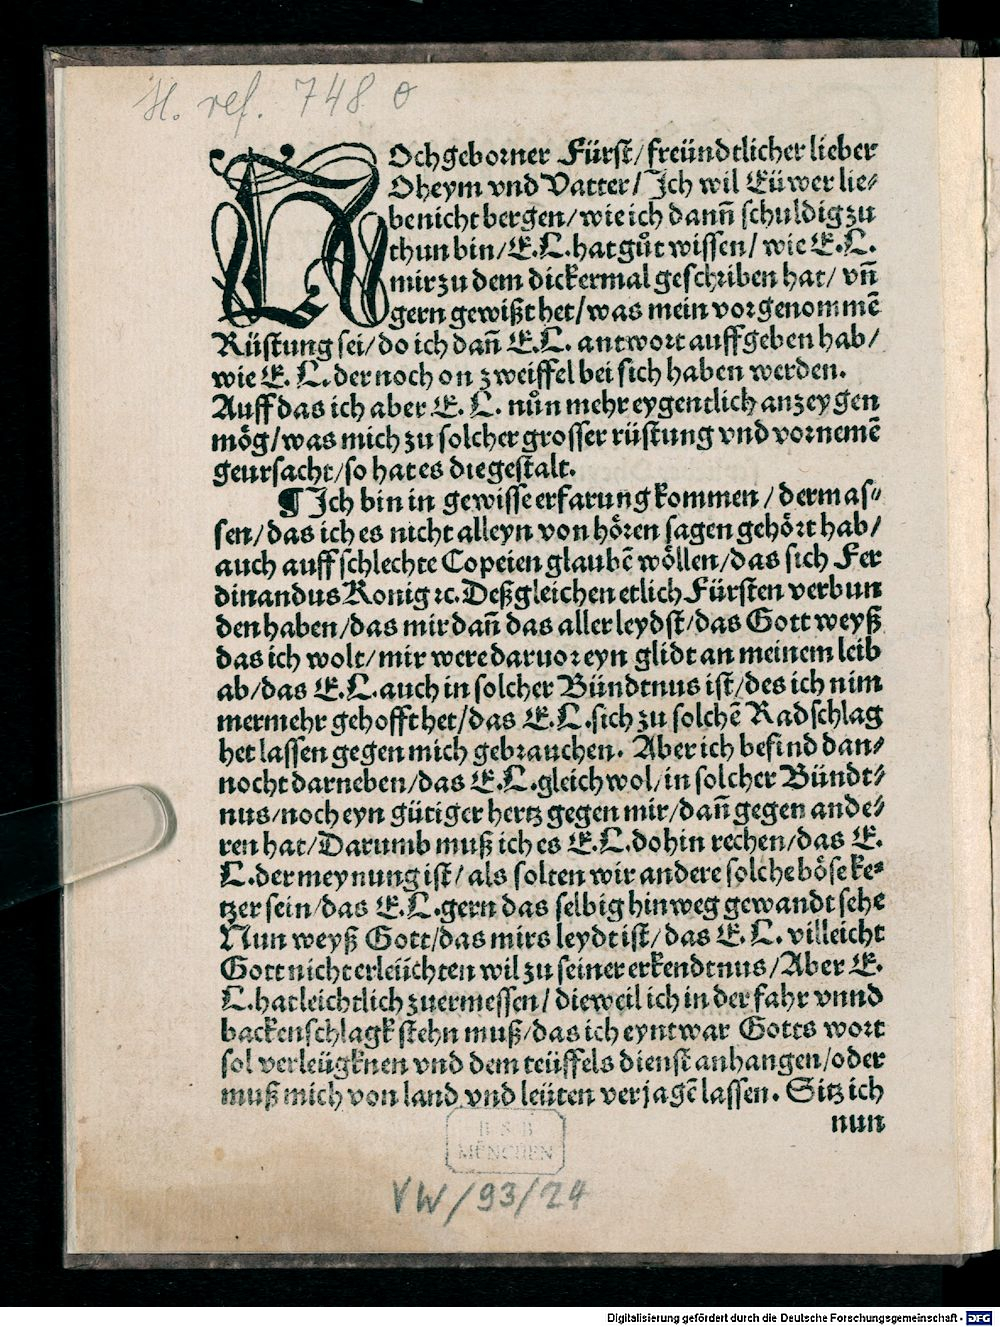 H. ref. 748 o
HOchgeborner Fürst/freündtlicher lieber
Oheym vnd Vatter/Ich wil Eüwer lie⸗
be nicht bergen/wie ich dann̄ schuldig zu
thun bin/E.L.hat gůt wissen/wie E.L.
mir zu dem dickermal geschriben hat/vn̄
gern gewißt het/was mein vorgenommē
Rüstung sei/do ich dan̄ E.L. antwort auffgeben hab/
wie E. L. der noch on zweiffel bei sich haben werden.
Auff das ich aber E. L. nůn mehr eygentlich anzeygen
mög/was mich zu solcher grosser rüstung vnd vornemē
geursacht/so hat es die gestalt.
¶ Ich bin in gewisse erfarung kommen/dermas⸗
sen/das ich es nicht alleyn von hören sagen gehört hab/
auch auff schlechte Copeien glaubē wöllen/das sich Fer
dinandus Konig ꝛc. Deßgleichen etlich Fürsten verbun
den haben/das mir dan̄ das aller leydst/das Gott weyß
das ich wolt/mir were daruor eyn glidt an meinem leib
ab/das E.L.auch in solcher Bündtnus ist/des ich nim
mermehr gehofft het/das E.L.sich zu solchē Radschlag
het lassen gegen mich gebrauchen. Aber ich befind dan⸗
nocht darneben/das E.L.gleichwol/in solcher Bündt⸗
nus/noch eyn gütiger hertz gegen mir/dan̄ gegen ande⸗
ren hat/Darumb muß ich es E.L.dohin rechen/das E.
L.der meynung ist/als solten wir andere solche böse ke⸗
tzer sein/das E.L.gern das selbig hinweg gewandt sehe
Nun weyß Gott/das mirs leydt ist/das E.L. villeicht
Gott nicht erleüchten wil zu seiner erkendtnus/Aber E.
L.hat leichtlich zuermessen/dieweil ich in der fahr vnnd
backenschlagk stehn muß/das ich eyntwar Gotts wort
sol verleügknen vnd dem teüffels dienst anhangen/oder
muß mich von land vnd leüten verjagē lassen. Sitz ich
nun
B S B
MÜNCHEN
VW/93/24
Digitalisierung gefördert durch die Deutsche Forschungsgemeinschaft - DFG